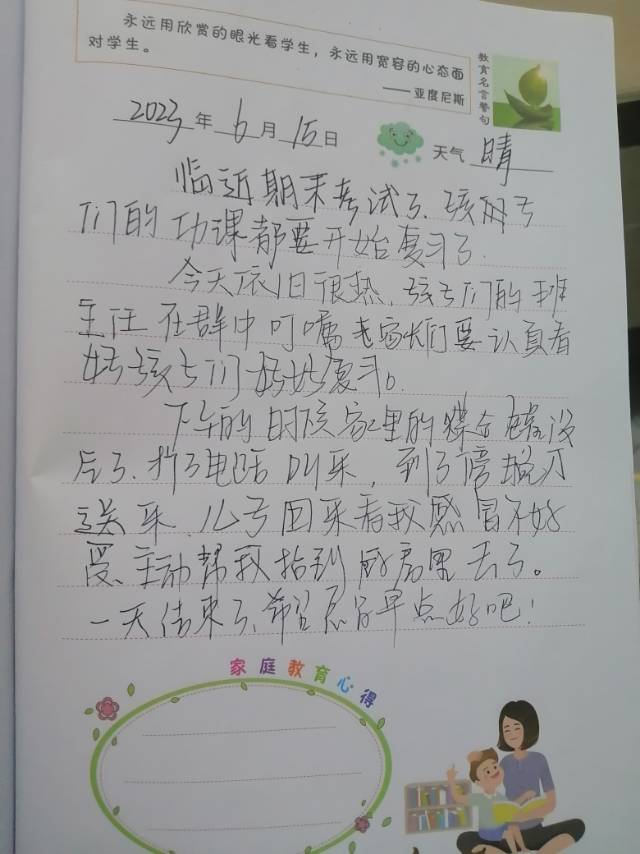 永远用欣赏的眼光看学生，永远用宽容的心态面
对学生。
——亚度尼斯
教育名言警句
2023年6月15日
天气 晴
临近期末考试了、孩子
们的功课都要开始复习了.
今天依旧很热，孩子们的班
主任在群中叮嘱老家长们要认真看
好孩子们好好复习。
下午的时候家里的煤全没
后了.打了电话叫来，到了傍晚才
送来.儿子回来看我感冒不好
受、主动帮我抬到厨房里去了。
一天结束了、希望感冒早点好吧！
家庭教育心得